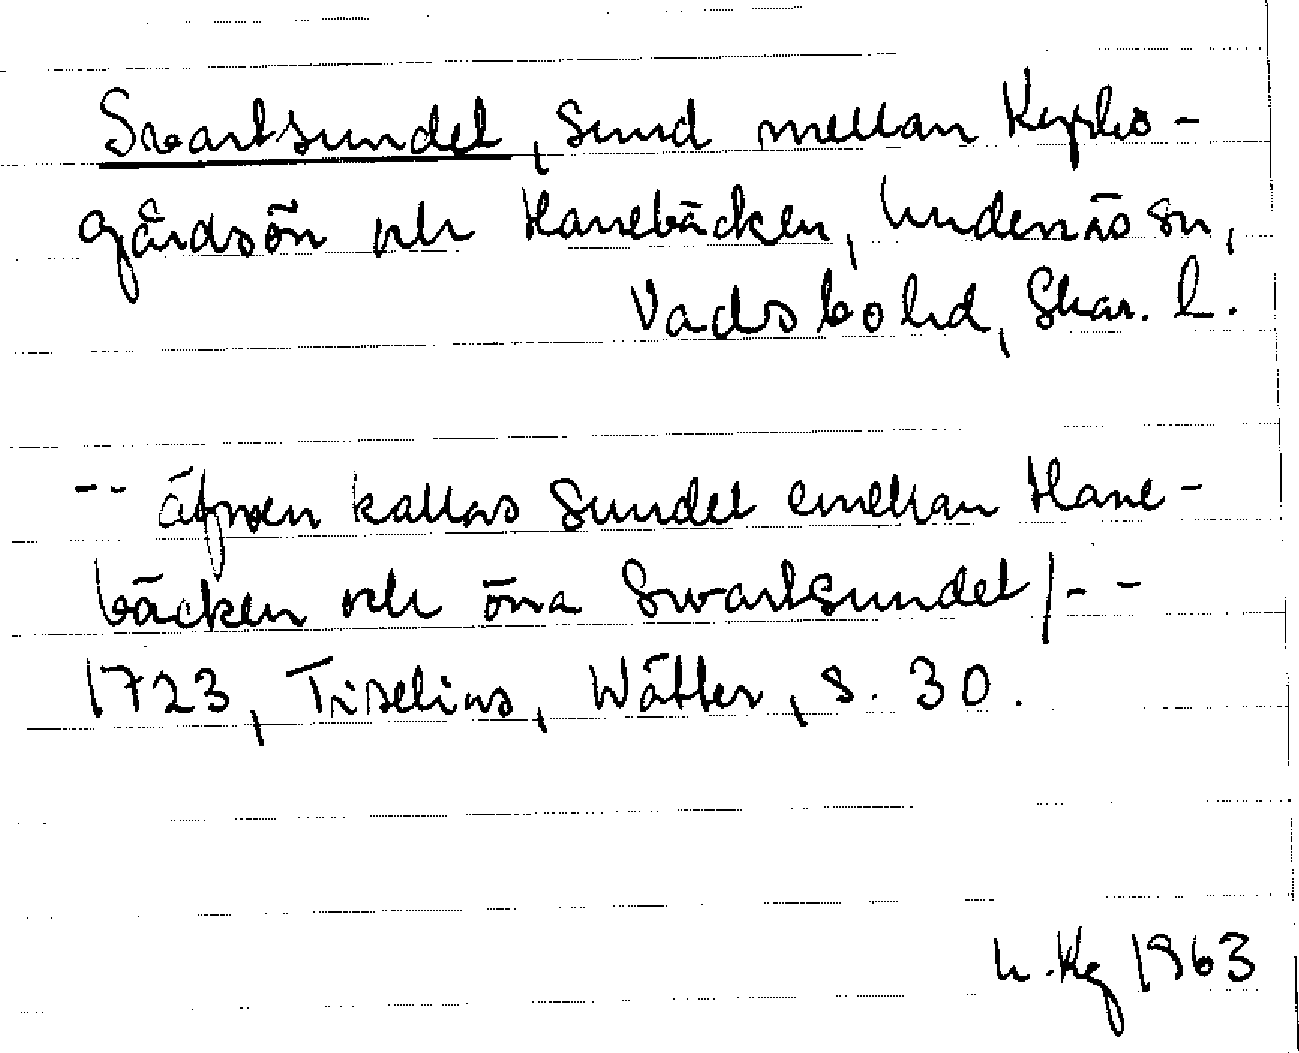 Svartsundet, sund mellan Kyrko-
gårdsön och Hanebäcken, Undenäs sn,
Vadsbo hd, Skar. l.
-- äfwen kallas Sundet emellan Hane-
bäcken och öna Swartsundet/--
1723, Tiselius, Wätter, s. 30.
h. Kg 1963